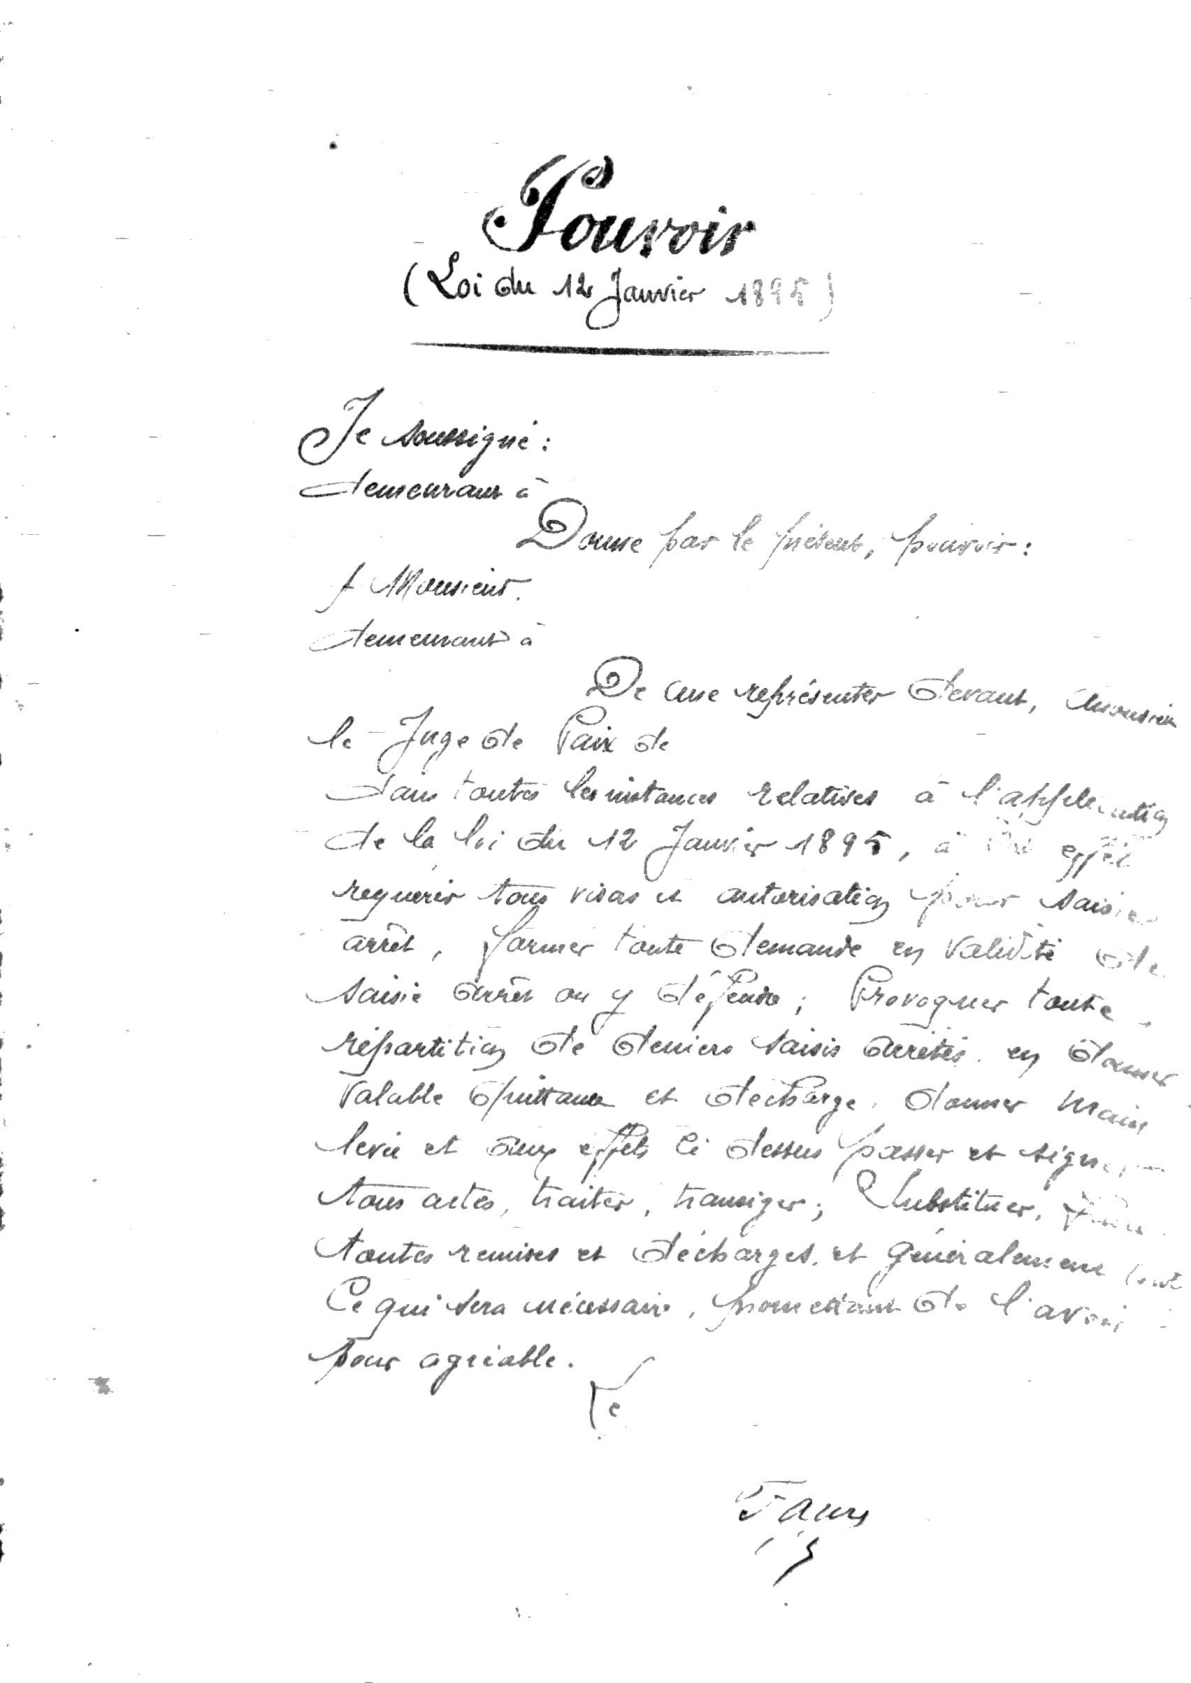 Pouvoir
(Loi du 12 Janvier 1895)
Je soussigné :
demeurant à
Donne par le présent, pouvoir :
A Monsieur.
demeurant à
De me représenter devant, Monsieur
le Juge de Paix de
dans toutes les instances relatives à l'application
de la loi du 12 Janvier 1895, à cet effet
requérir tous visas et autorisation pour saisie
arrêt, former toute demande en validité de
saisie arrêt ou y défendre ; Provoquer toute
répartition de deniers saisis arrêtés. en donner
valable quittance et décharge. donner main
levée et aux effets ci dessus passer et signer
tous actes, traiter, transiger ; Substituer,
toutes remises et décharges. et généralement tout
Ce qui sera nécessaire, promettant de l'avoir
pour agréable.
Le